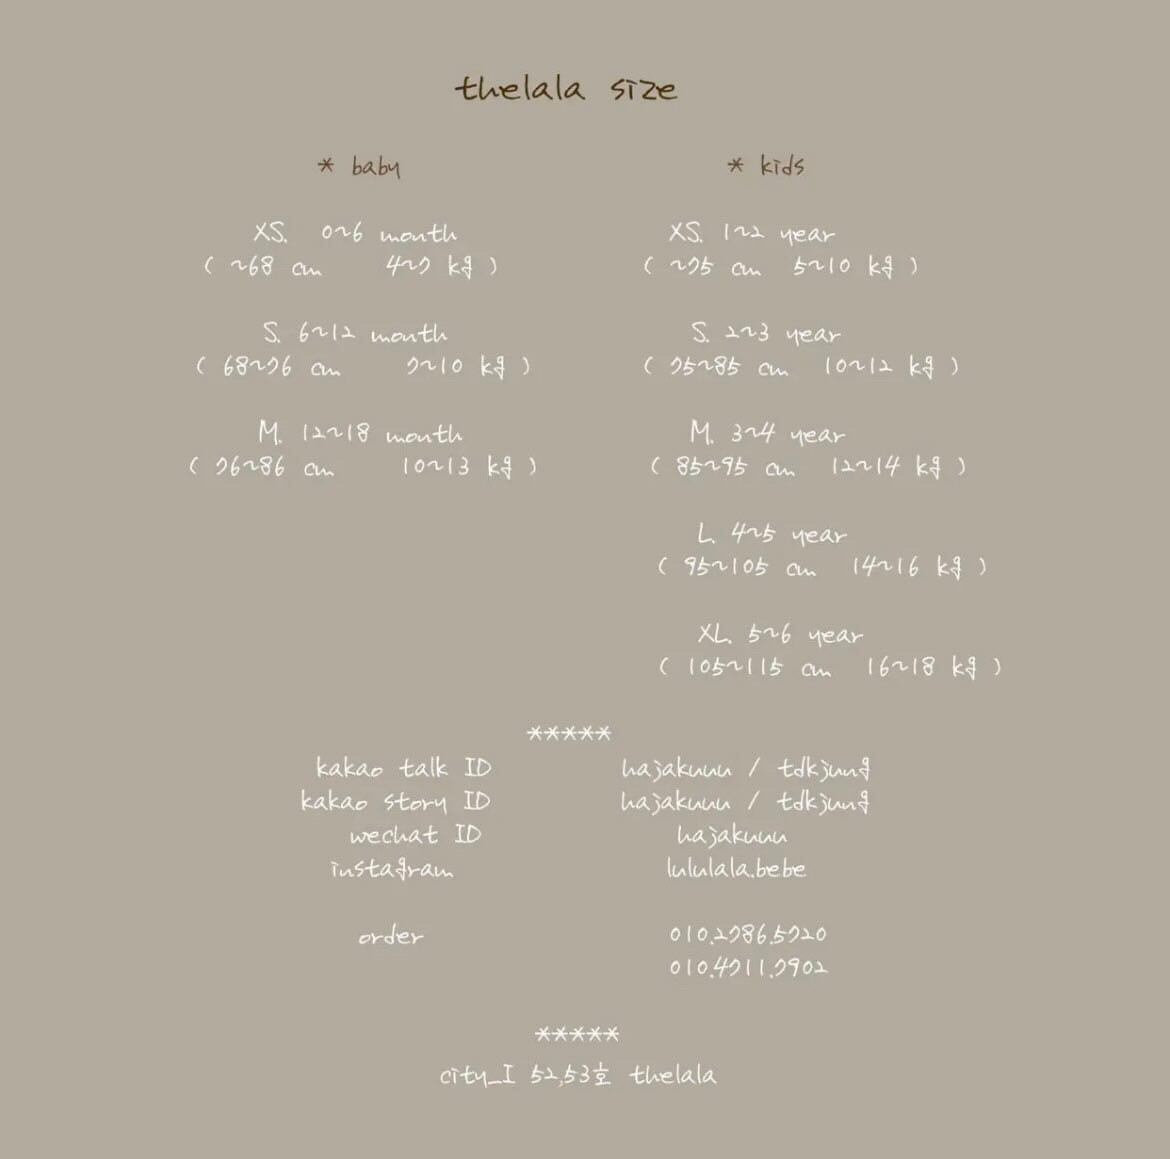 thelala size
* baby
XS. 0~6 month
( ~68 cm 4~7 kg )
S. 6~12 month
( 68~76 cm 7~10 kg )
M. 12~18 month
( 76~86 cm 10~13 kg )
* kids
XS. 1~2 year
( ~75 cm 5~10 kg )
S. 2~3 year
( 75~85 cm 10~12 kg )
M. 3~4 year
( 85~95 cm 12~14 kg )
L. 4~5 year
( 95~105 cm 14~16 kg )
XL. 5~6 year
( 105~115 cm 16~18 kg )
*****
kakao talk ID hajakuuu / tdkjung
kakao story ID hajakuuu / tdkjung
wechat ID hajakuuu
instagram lululala.bebe
order 010.2786.5720
010.4711.7902
*****
city_I 52,53호 thelala